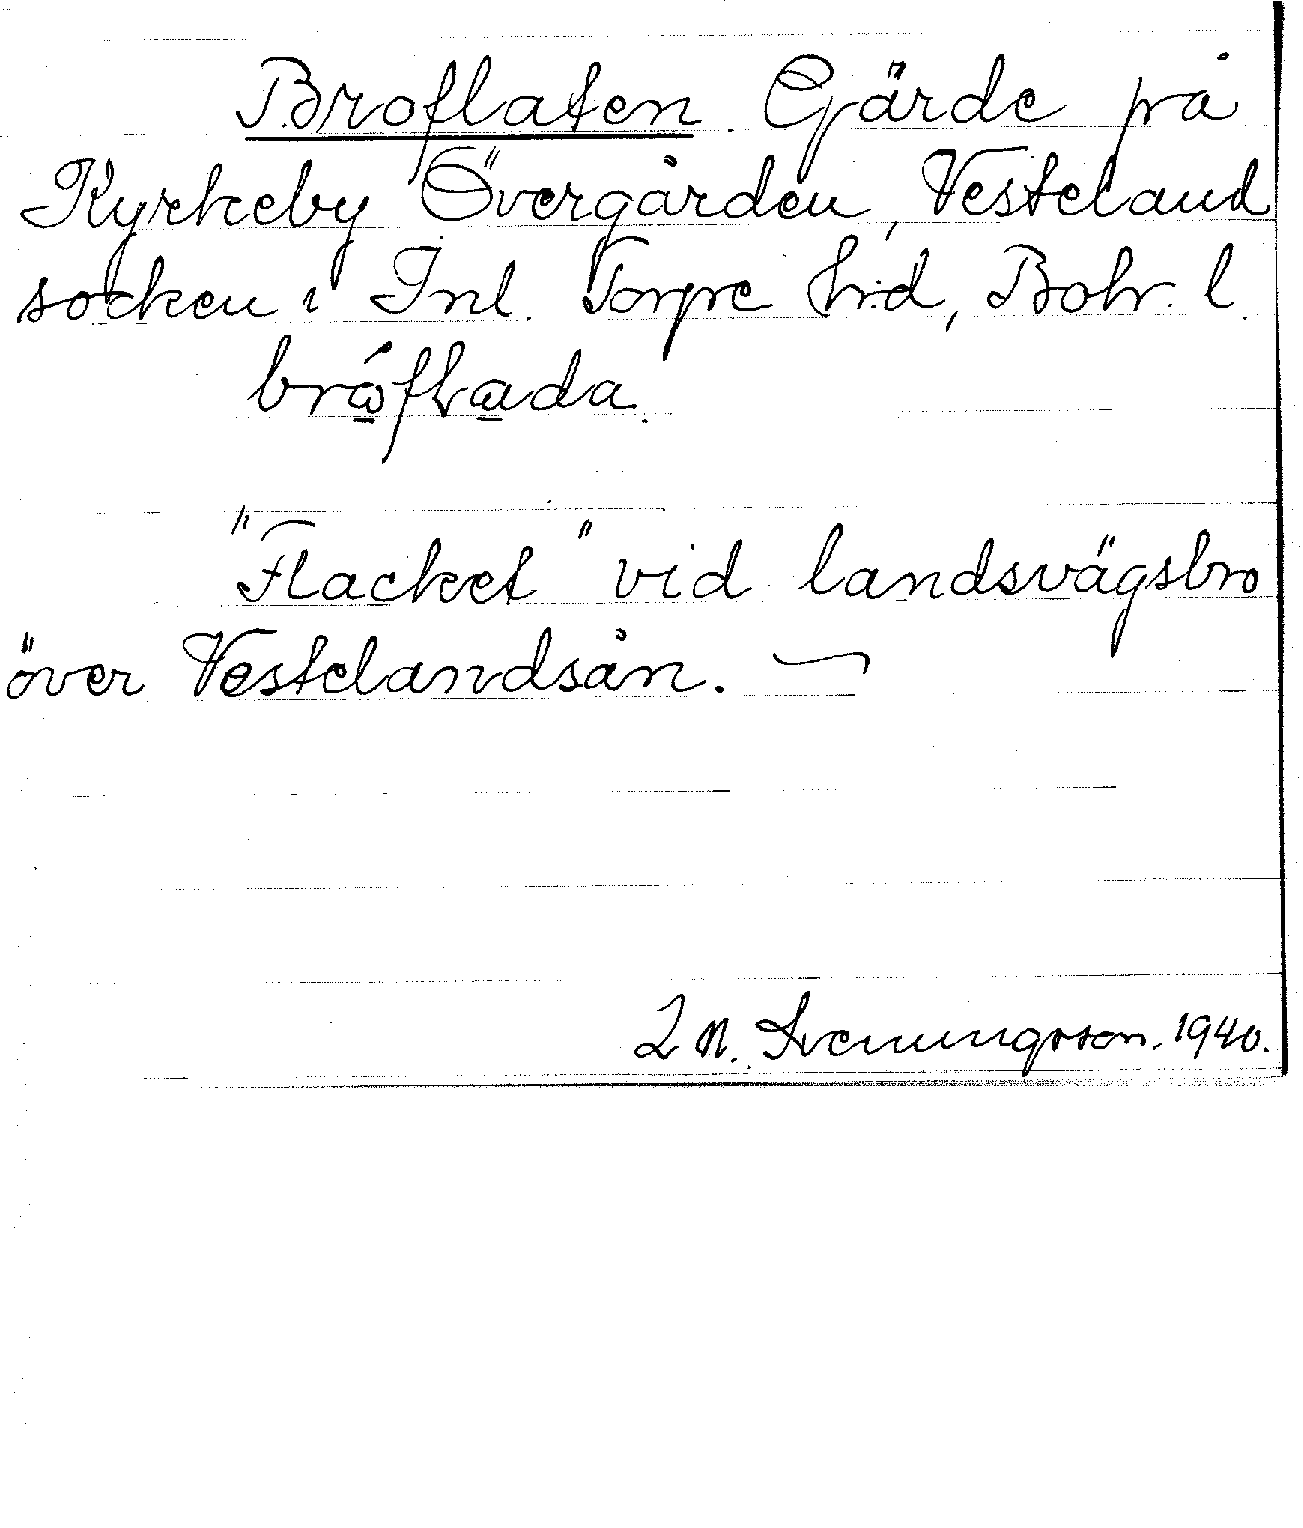 Broflaten. Gärde på
Kyrkeby Övergården, Vesteland
socken i Inl. Torpe h:d, Boh. l.
bråflada.
"Flacket" vid landsvägsbro
över Vestelandsån. —
Svenungsson. 1940.